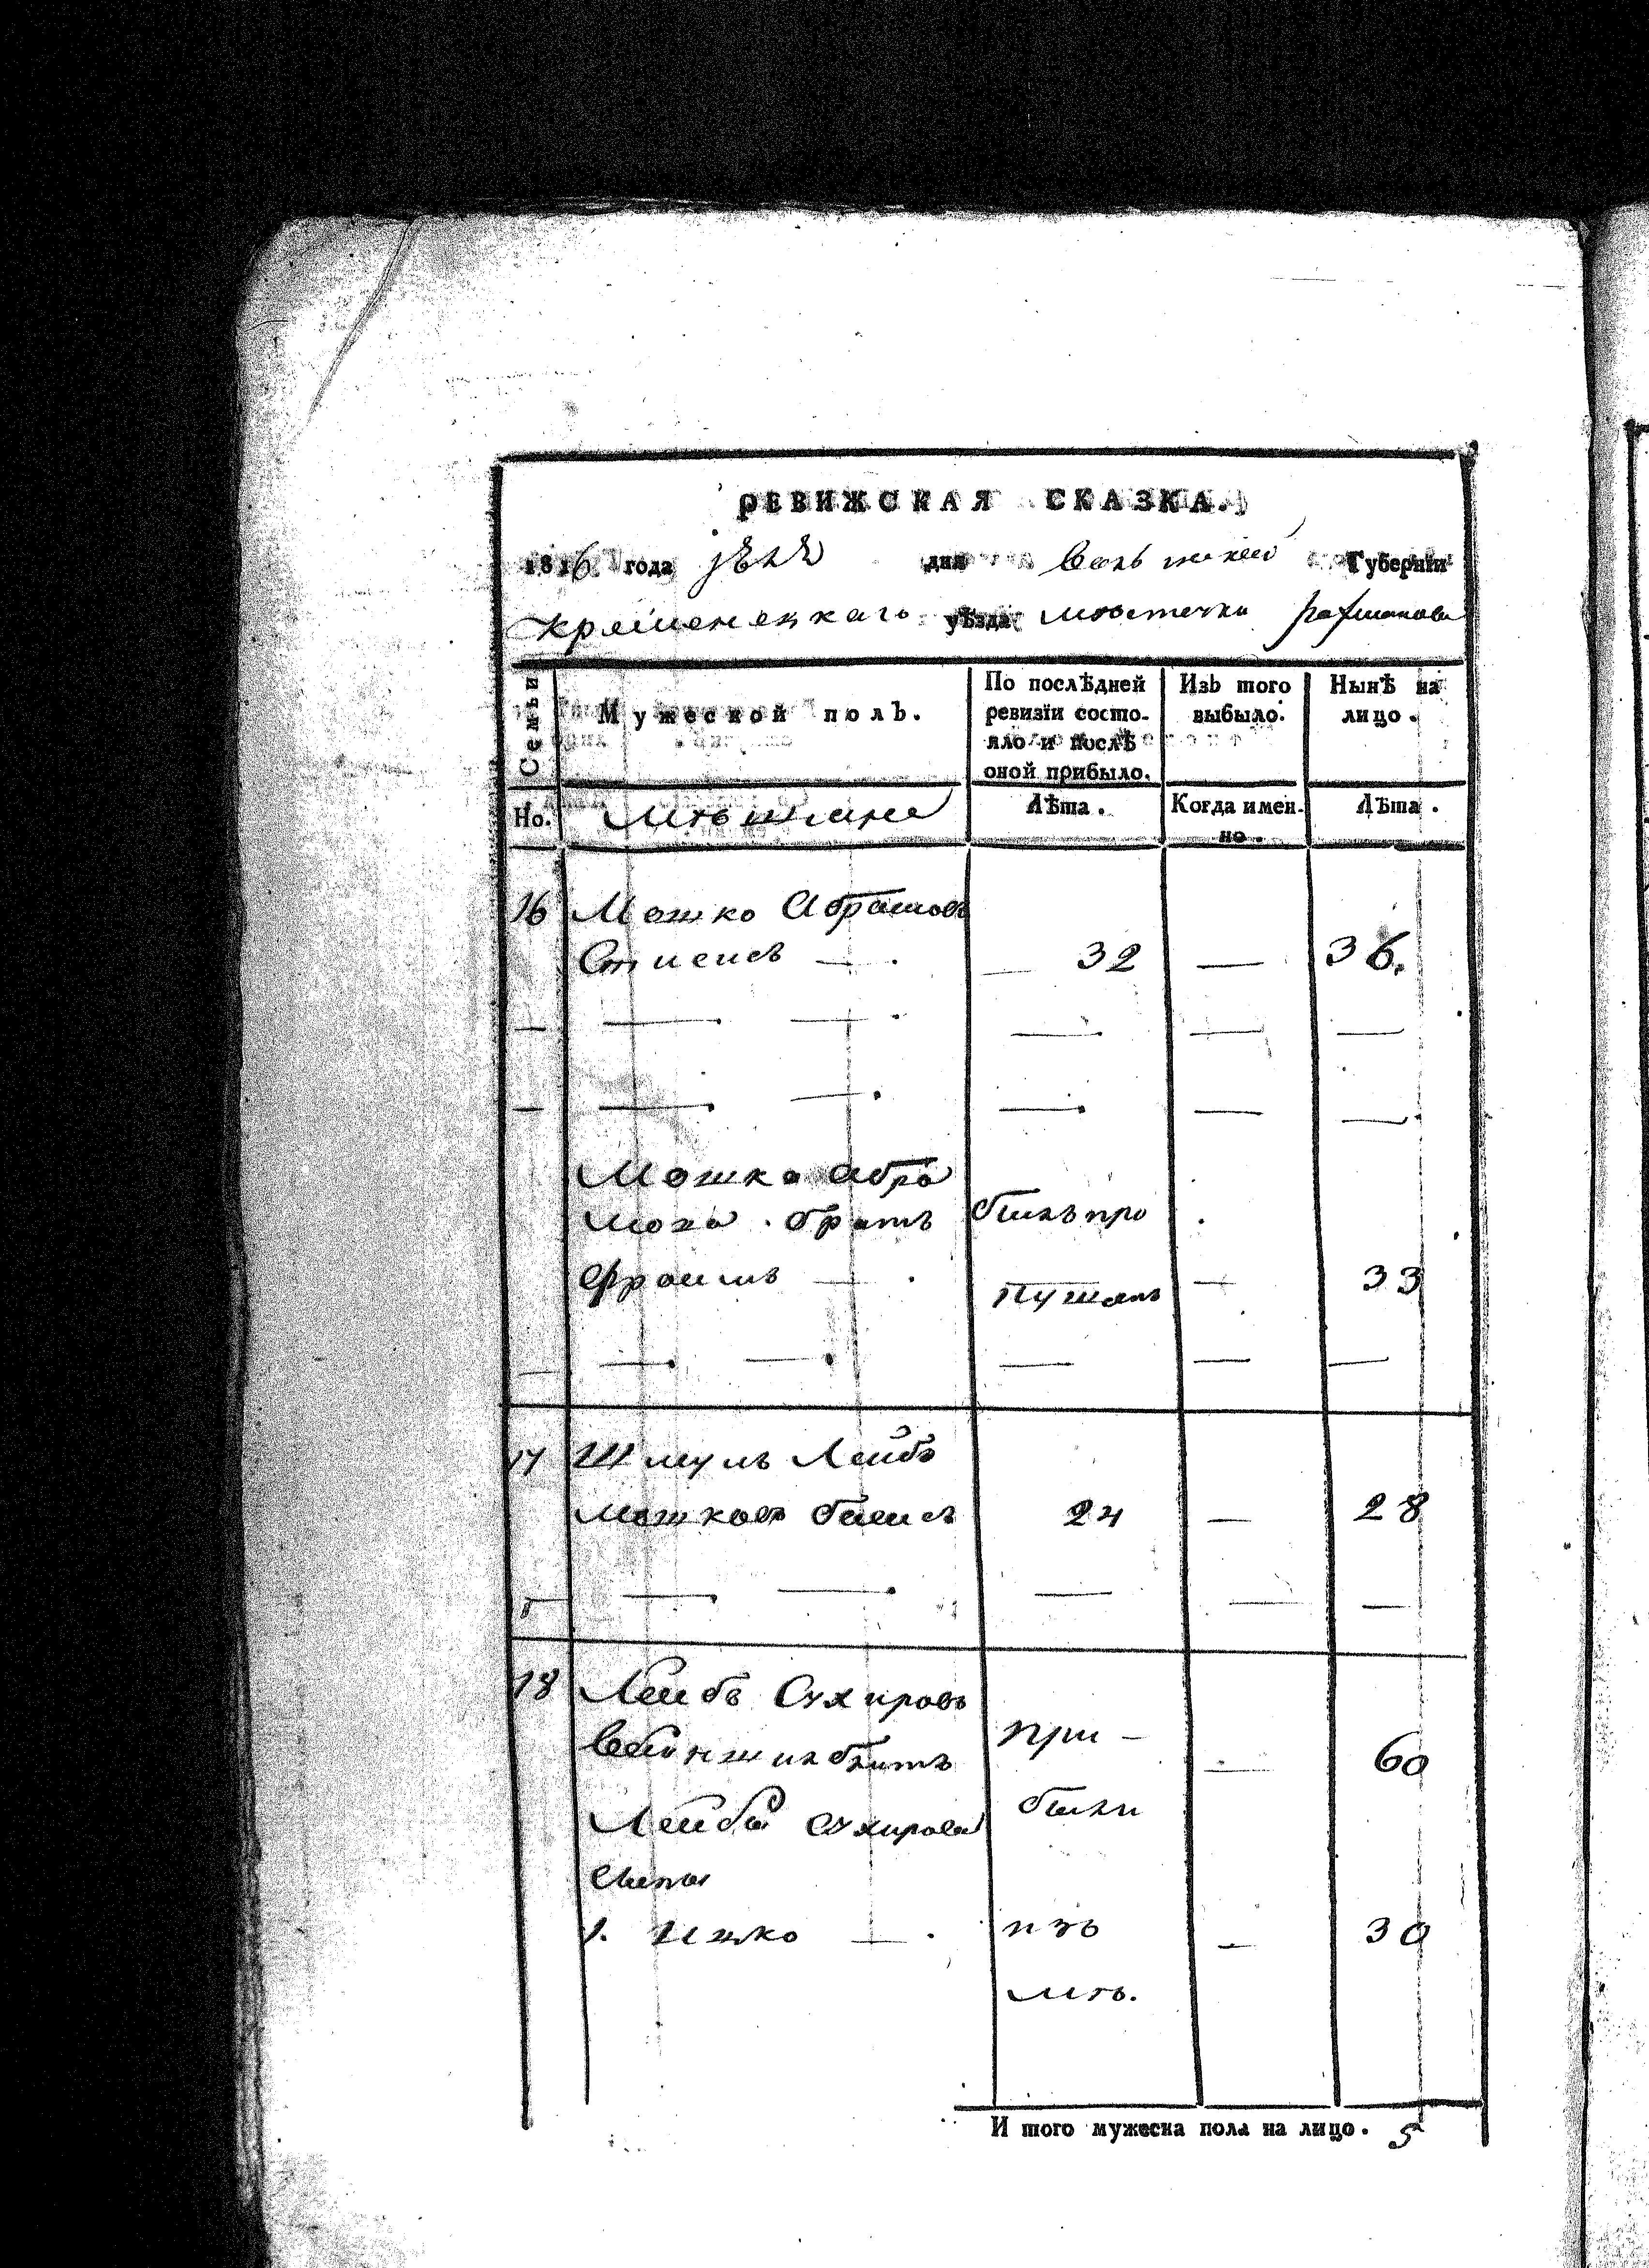 РЕВИЖСКАЯ СКАЗКА.
1816 года дня Губерніи
Кременецкаго уѣзда мѣстечка Рахманова
Семьи
Мужеской полъ.
По послѣдней ревизіи состояло и послѣ оной прибыло.
Изъ того выбыло.
Нынѣ на лицо.
Но. мѣщане Лѣта. Когда именно. Лѣта.
16 Мошко Абрамовъ
— . — 32 — 36.
— — — . — — —
— — — . — — —
Мошка Абра
мова братъ былъ про
Фроимъ — . пущенъ — 33
— — — . — — —
17 Шмуль Лейбъ
Мошковъ 24 — 28
— — — . — — —
18 Лейбъ Сухировъ
при — — 60
Лейбы Сухирова были
сыны
1. Ицко — . изъ — 30
мѣ.
И того мужеска пола на лицо. 5